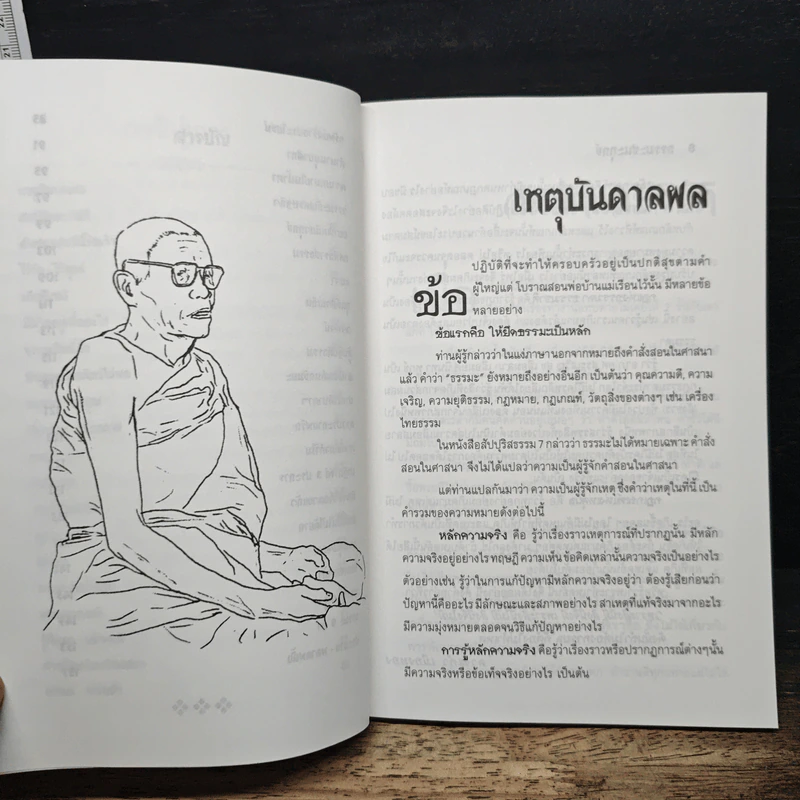 เหตุบันดาลผล
ข้อ
ปฏิบัติที่จะทำให้ครอบครัวอยู่เป็นปกติสุขตามคำ
ผู้ใหญ่แต่ โบราณสอนพ่อบ้านแม่เรือนไว้นั้น มีหลายข้อ
หลายอย่าง
ข้อแรกคือ ให้ยึดธรรมะเป็นหลัก
ท่านผู้รู้กล่าวว่าในแง่ภาษานอกจากหมายถึงคำสั่งสอนในศาสนา
แล้ว คำว่า "ธรรมะ" ยังหมายถึงอย่างอื่นอีก เป็นต้นว่า คุณความดี, ความ
เจริญ, ความยุติธรรม, กฎหมาย, กฎเกณฑ์, วัตถุสิ่งของต่างๆ เช่น เครื่อง
ไทยธรรม
ในหนังสือสัปปุริสธรรม 7 กล่าวว่า ธรรมะไม่ได้หมายเฉพาะ คำสั่ง
สอนในศาสนา จึงไม่ได้แปลว่าความเป็นผู้รู้จักคำสอนในศาสนา
แต่ท่านแปลกันมาว่า ความเป็นผู้รู้จักเหตุ ซึ่งคำว่าเหตุในที่นี้ เป็น
คำรวมของความหมายดังต่อไปนี้
หลักความจริง คือ รู้ว่าเรื่องราวเหตุการณ์ที่ปรากฏนั้น มีหลัก
ความจริงอยู่อย่างไร ทฤษฎี ความเห็น ข้อคิดเหล่านั้นความจริงเป็นอย่างไร
ตัวอย่างเช่น รู้ว่าในการแก้ปัญหามีหลักความจริงอยู่ว่า ต้องรู้เสียก่อนว่า
ปัญหานี้คืออะไร มีลักษณะและสภาพอย่างไร สาเหตุที่แท้จริงมาจากอะไร
มีความมุ่งหมายตลอดจนวิธีแก้ปัญหาอย่างไร
การรู้หลักความจริง คือรู้ว่าเรื่องราวหรือปรากฏการณ์ต่างๆนั้น
มีความจริงหรือข้อเท็จจริงอย่างไร เป็นต้น